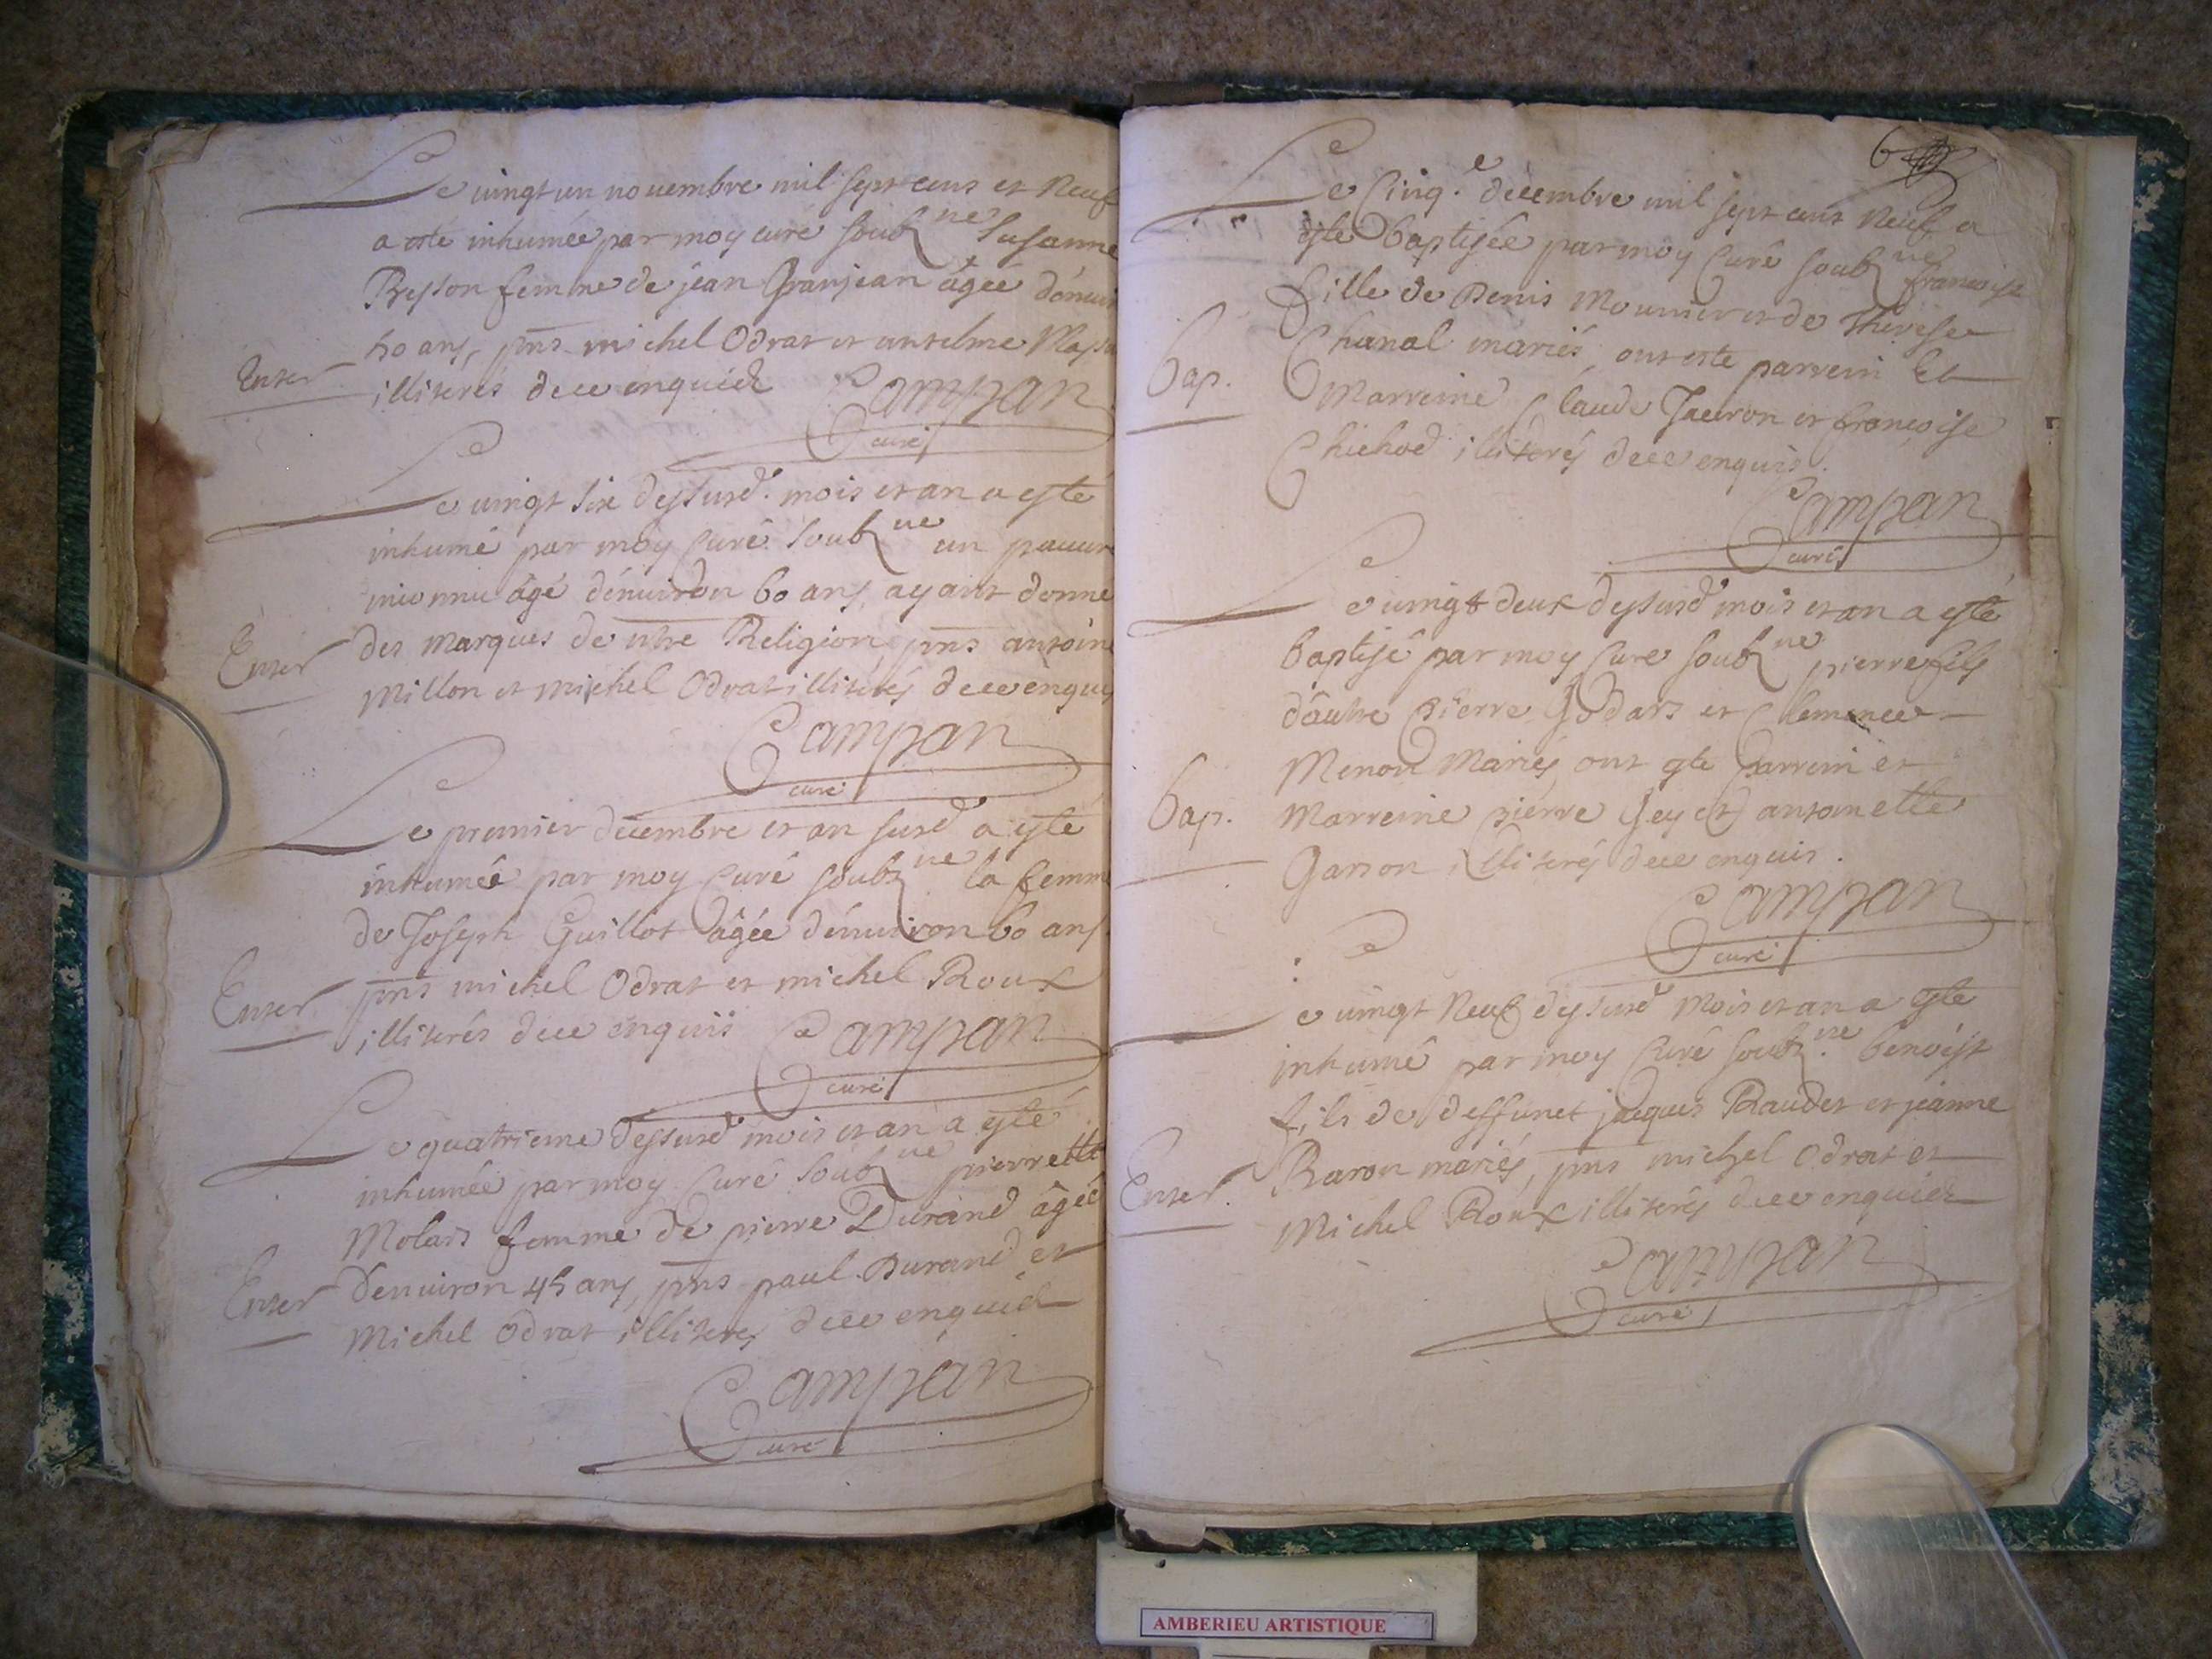 Le vingt un novembre mil sept cens et Neuf
a esté inhumée par moy curé soubzne Susanne
Bysson femme de jean Granjean âgée d'énviron
50 ans, pns michel Odrat et antelme
Enter
illiterés dece enquis
Campan
curé
Le vingt six dessusd. mois et an a esté
inhumé par moy Curé soubzne un pauvre
inconnu âgé d'énviron 60 ans, ayant donné
Enter
des marques de ntre Religion, pns antoine
Millon et michel Odrat illiterés dece enquis
Campan
curé
Le premier décembre et an susd a esté
inhumée par moy Curé soubzne la femme
de Joseph Guillot âgée d'énviron 60 ans
Enter
pns michel Odrat et michel Roux
illiterés dece enquis
Campan
curé
Le quatrieme dessusd mois et an a esté
inhumée par moy Curé soubzne pierrette
Molars femme de pierre Durand âgée
Enter
d'environ 45 ans, pns paul Durand et
Michel Odrat illiterés dece enquis
Campan
curé
6
Le Cinq.e décembre mil sept cens Neuf a
esté baptisée par moy Curé soubzne françoise
fille de Denis Mounier et de Therese
Bap.
Chanal mariés, ont esté parrein Et
Marreine Claude Jacron et françoise
Chichod illiterés dece enquis.
Campan
curé
Le vingt deux dessusd mois et an a esté
baptisé par moy Curé soubzne pierre fils
d'autre Pierre Godars et Clemence
Menon Mariés ont esté Parrein et
Bap.
Marreine Pierre Gey et antoinette
Garson illiterés dece enquis.
Campan
curé
Le vingt Neuf dessusd Mois et an a esté
inhumé par moy Curé soubzne benoist
fils de deffunct jacques Raudet et jeanne
Enter.
Baron mariés, pns michel Odrat et
Michel Roux illiterés dece enquis
Campan
curé
AMBERIEU ARTISTIQUE